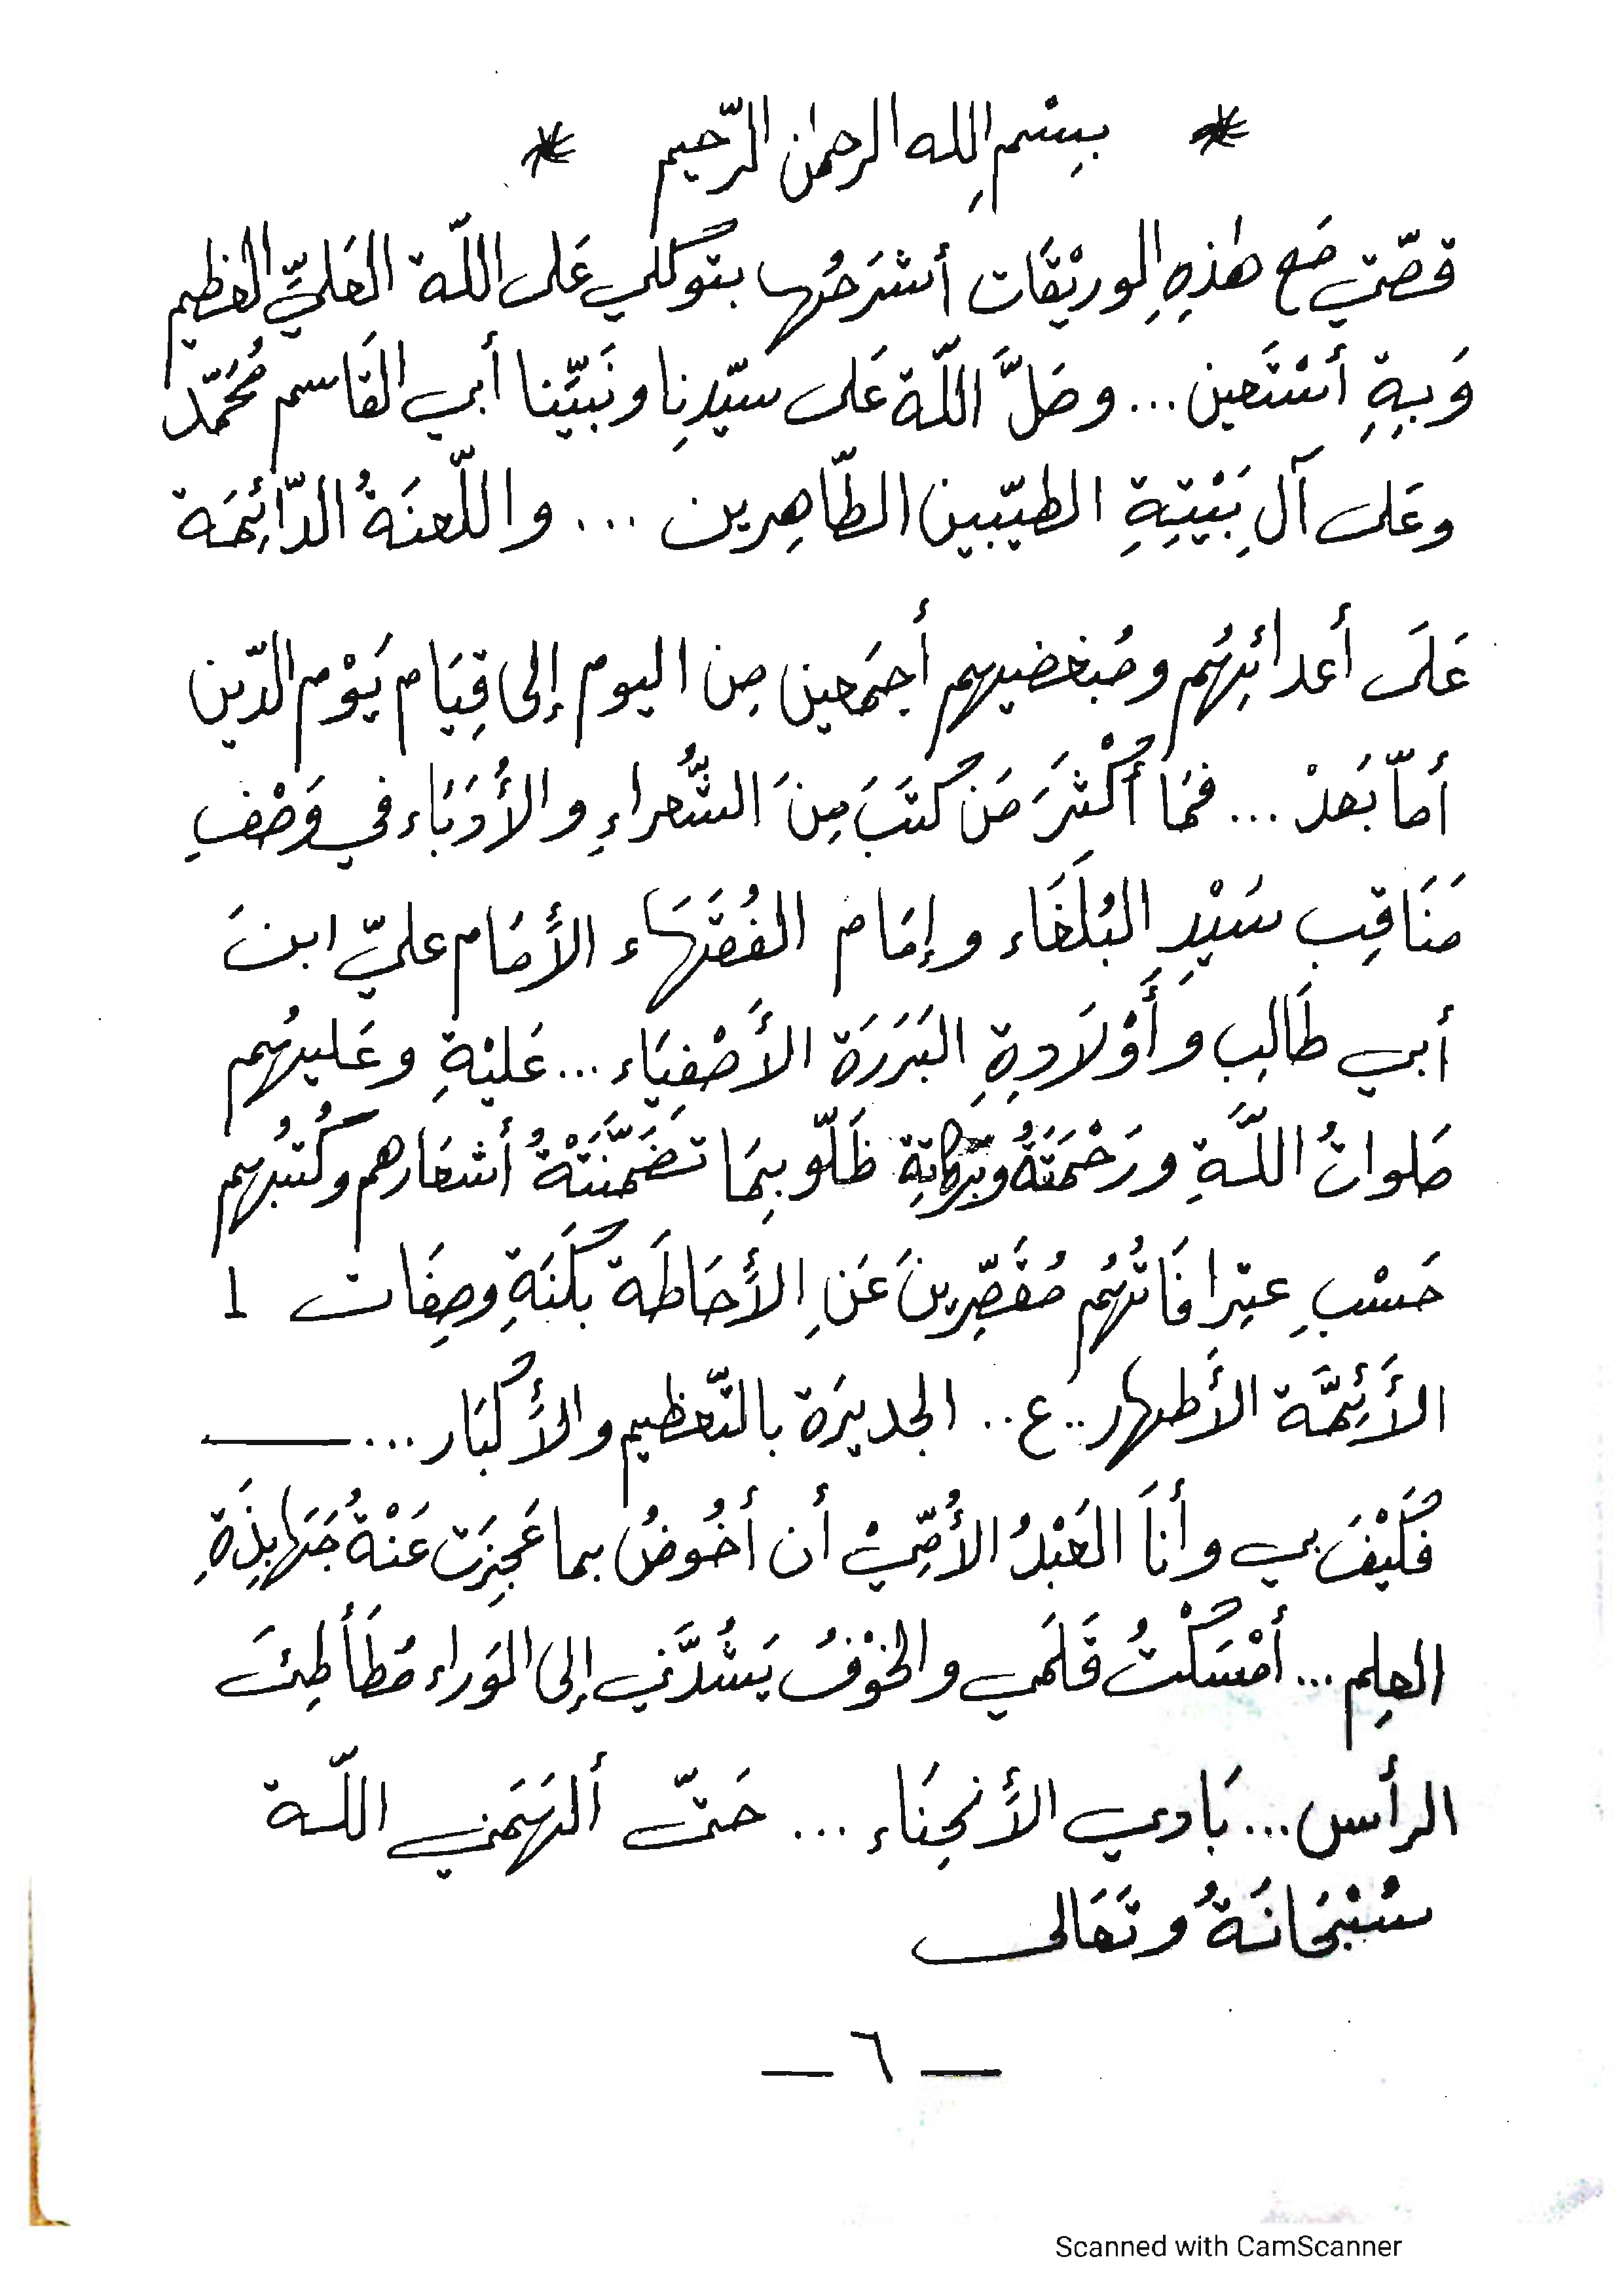 * بِسْمِ اللهِ الرحمٰن الرّحيم *
قصّتي مَع هٰذِهِ الوريْقَات أشرَحُها بتوكلي عَلى اللّة العَليِّ العظيم
وَبِةِ أسْتَعين ... وصَلَّ اللّة عَلى سيّدِنِا ونَبيِّنا أبي القَاسم مُحَمّد
وعَلى آلِ بَيْتِةِ الطيّبين الطّاهِرين ... واللّعنَةُ الدّائِمَة
عَلَى أعدائِهُم ومُبغضيهم أجمَعين مِن اليوم إلى قِيَام يَوْم الدّين
أمّا بَعدْ ... فمَا أكْثَرَ مَن كتَبَ مِنَ الشُّعراءِ والأُدَبَاء في وَصْفِ
مَنَاقِب سَيْدِ البُلَغَاء وإمَام الفُقَهَاء الأمَام عليّ ابنَ
أبي طَالِب وأَوْلَادِةِ البَرَرَة الأَصْفِيَاء ... عَليْةِ وعَليهُم
صَلواتُ اللّةِ ورَحْمَتَةُ وبَرَكَاتِة ظَلّو بِمَا تضَمَّنَتْةُ أشعَارهم وكُتبُهم
حَسْبِ عتِرافَاتهُم مُقَصِّرينَ عَنِ الأَحَاطَة بكَنَةِ وصِفَات ـا
الأَئِمَّة الأَطهار..ع.. الجديرَة بالتّعظيم والأَكبَار ... ــ
فكَيْفَ بي وأنَا العَبْدُ الأُمِّيْ أن أخُوضُ بما عَجِزَت عَنْةُ جَهَابِذَةِ
العِلم ... أمْسَكْتُ قَلَمي والخوْفُ يَشُدَّني إلى الوَراء مُطَأطِئَ
الرأس ... بَادي الأَنحِنَاء ... حَتّى ألهَمَني اللّة
سُبْحَانَةُ وتَعَالى
— ٦ —
Scanned with CamScanner